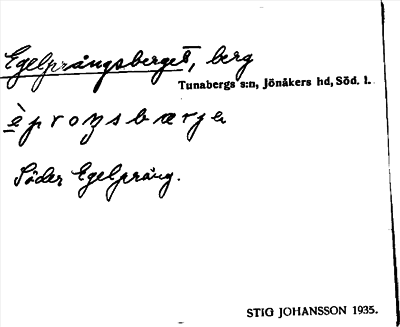 Egelprångsberget, berg
Tunabergs s:n, Jönåkers hd, Söd. l.
è p r o ŋ s b æ r j e
Söder Egelprång.
STIG JOHANSSON 1935.